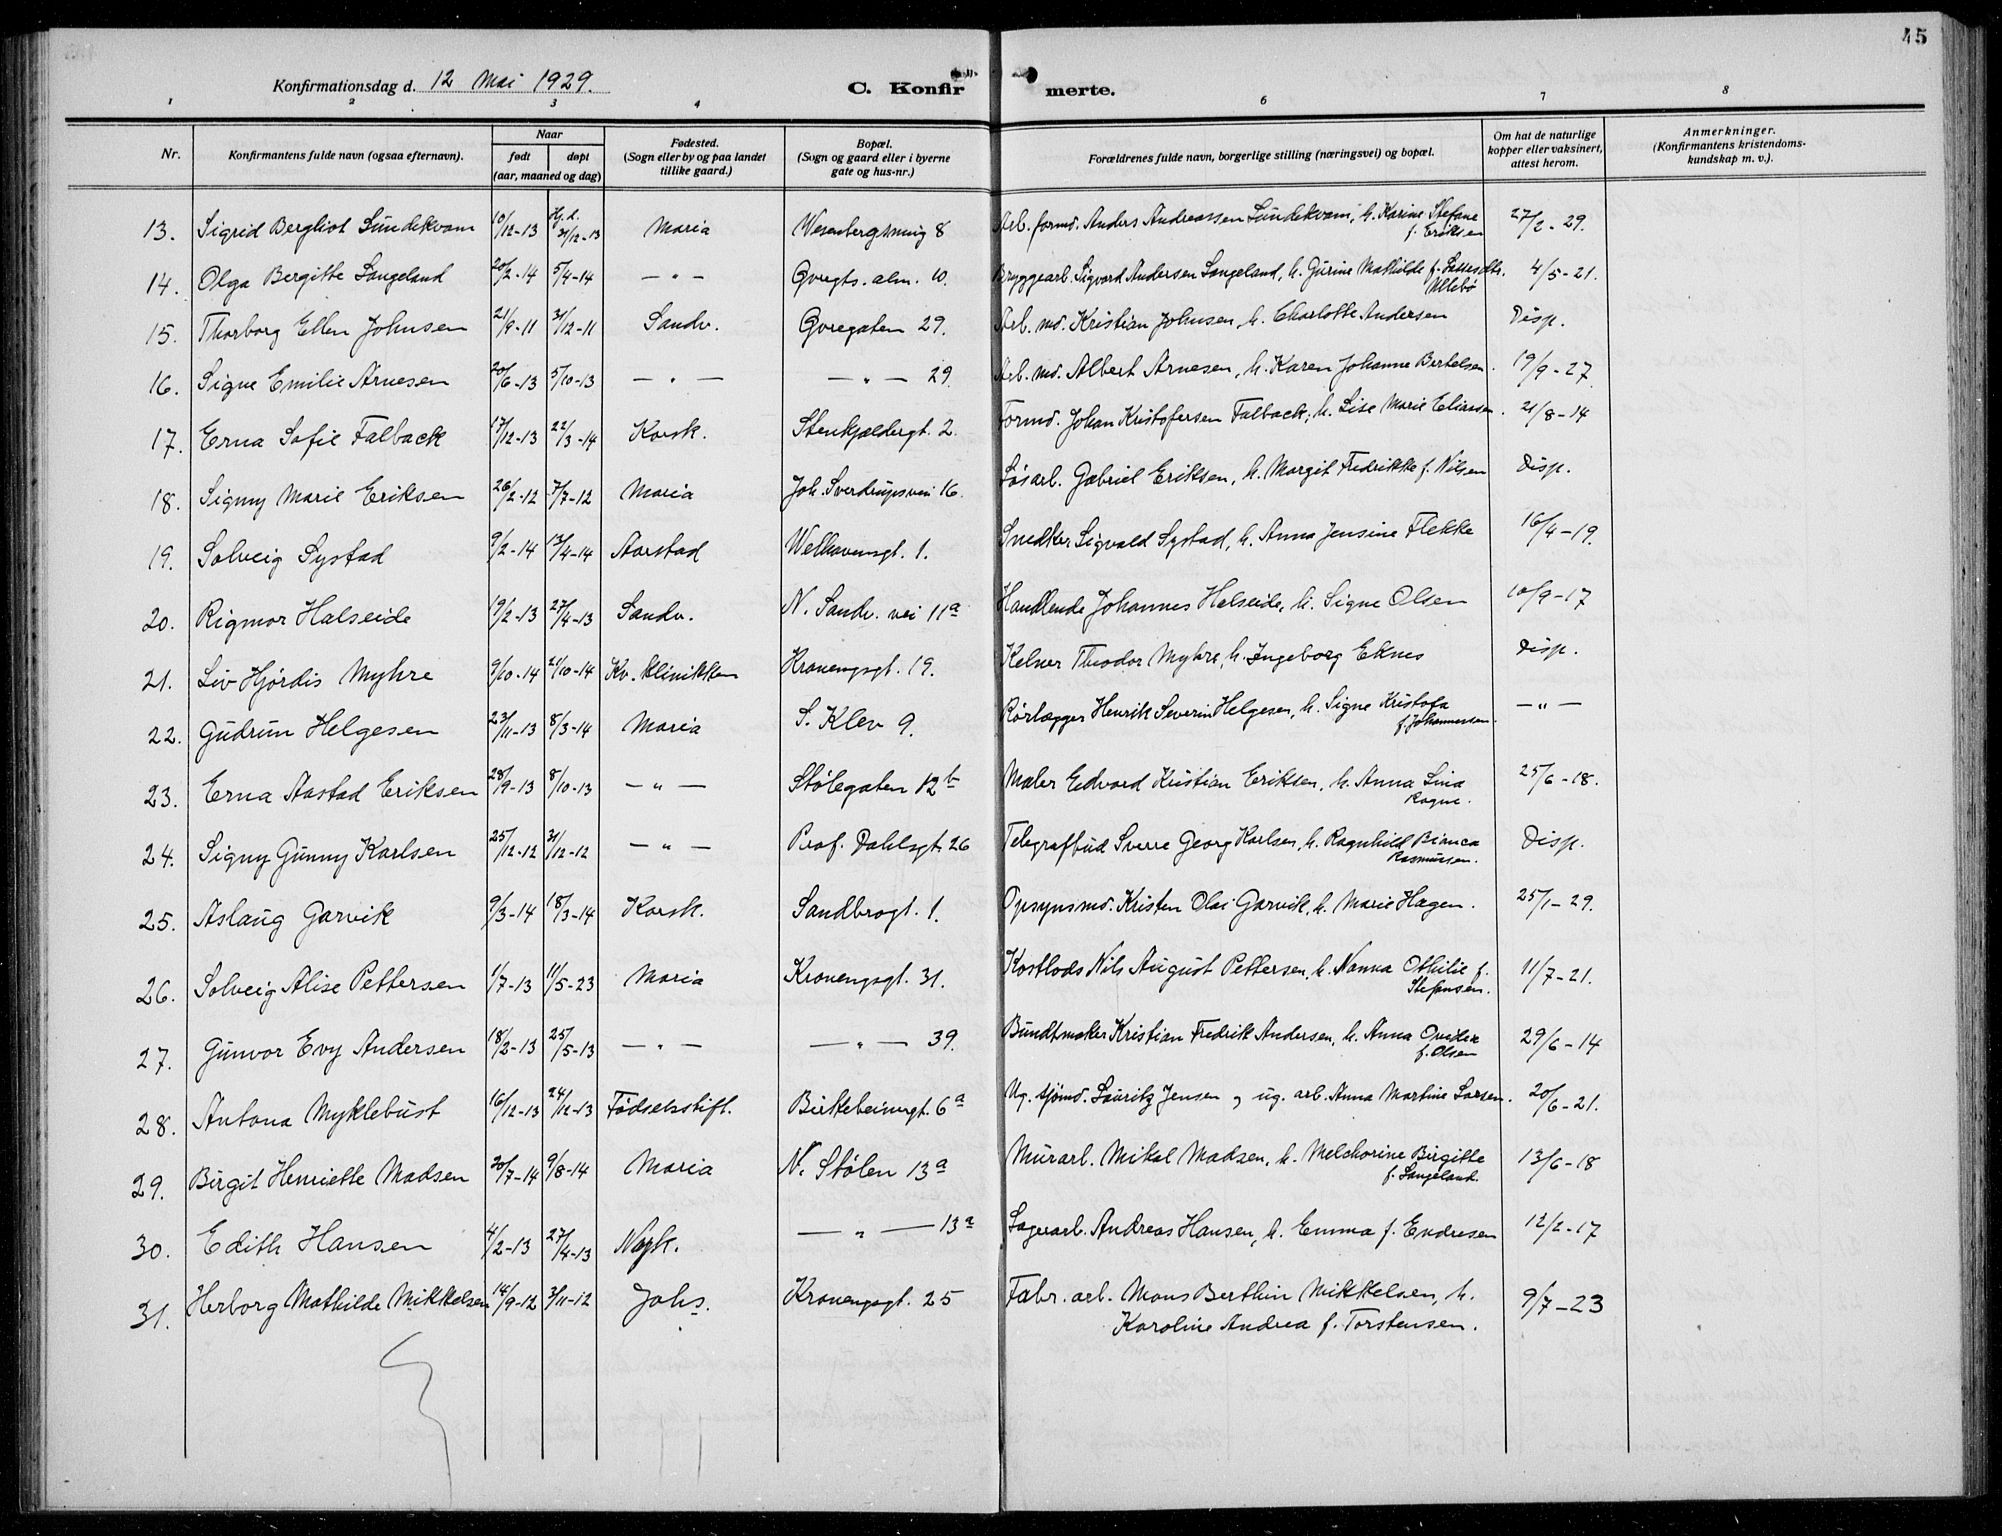 45
Konfirmationsdag d. 12 Mai 1929.
C. Konfirmerte.
1 2 3 4 5 6 7 8
Nr. | Konfirmantens fulde navn (ogsaa efternavn). | Naar født døpt (aar, maaned og dag) | Fødested. (Sogn eller by og paa landet tillike gaard.) | Bopæl. (Sogn og gaard eller i byerne gate og hus-nr.) | Forældrenes fulde navn, borgerlige stilling (næringsvei) og bopæl. | Om hat de naturlige kopper eller vaksinert, attest herom. | Anmerkninger. (Konfirmantens kristendomskundskap m. v.).
13. Sigrid Bergliot Sundekvam 10/12-13 Hj.d. 31/12-13 Maria Wesenbergsmug 8 Arb. formd. Anders Andreassen Sundekvam, h. Karine Stefane f. Eriksen 27/2-29.
14. Olga Bergitte Langeland 20/2-14 5/4-14 — " — Øvregts. alm. 10. Bryggearb. Sigvard Andersen Langeland, h. Gurine Mathilde f. Lassesdtr. Ullebø 4/5-21.
15. Thorborg Ellen Johnsen 21/9-11 31/12-11 Sandv. Øvregaten 29. Arb. md. Kristian Johnsen, h. Charlotte Andersen Disp.
16. Signe Emilie Arnesen 20/6-13 5/10-13 — " — — " — 29. Arb. md. Albert Arnesen, h. Karen Johanne Bertelsen. 19/9-27.
17. Erna Sofie Falback 17/12-13 22/3-14 Korsk. Stenkjeldergt. 2. Formd. Johan Kristofersen Falback, h. Lise Marie Eliassen. 21/8-14
18. Signy Marie Eriksen 26/2-12 7/7-12 Maria Joh. Sverdrupsvei 16. Løsarb. Gabriel Eriksen, h. Margit Fredrikke f. Nilsen Disp.
19. Solveig Systad 9/2-14 13/4-14 Aarstad Welhavensgt. 1. Snedker Sigvald Systad, h. Anna Jensine Flekke 16/4-19.
20. Rigmor Halseide 19/2-13 27/4-13 Sandv. N. Sandv. vei 11a Handlende Johannes Halseide, h. Signe Olsen 10/9-17
21. Liv Hjørdis Myhre 9/10-14 21/10-14 Kv. klinikken Kroneng­sgt. 19. Kelner Theodor Myhre, h. Ingeborg Eknes Disp.
22. Gudrun Helgesen 23/11-13 8/3-14 Maria S. Klev 9. Rørlægger Henrik Severin Helgesen, h. Signe Kristofa f. Johannessen. — " —
23. Erna Aastad Eriksen 28/9-13 8/10-13 — " — Stølegaten 12b Maler Edvard Kristian Eriksen, h. Anna Lina Ragne. 25/6-18.
24. Signy Gunny Karlsen 25/12-12 31/12-12 — " — Prof. Dahlsgt. 26 Telegrafbud Sverre Georg Karlsen, h. Ragnhild Bianca Rasmussen. Disp.
25. Aslaug Garvik 9/3-14 18/3-14 Korsk. Sandbrogt. 1. Opsynsmd. Kristen Olai Garvik, h. Marie Hagen. 25/1-29.
26. Solveig Alise Pettersen 1/7-13 11/5-23 Maria Kronengsgt. 31. Kostlods Nils August Pettersen, h. Nanna Othilie f. Stefansen. 11/7-21.
27. Gunvor Evy Andersen 18/2-13 25/5-13 — " — — " — 39. Bundtmaker Kristian Fredrik Andersen, h. Anna f. Olsen 29/6-14
28. Antona Myklebust 16/12-13 24/12-13 Fødselsstift. Birkebeinergt. 6a Ug. sjømd. Lauritz Jensen og ug. arb. Anna Martine Larsen. 20/6-21.
29. Birgit Henriette Madsen 20/7-14 9/8-14 Maria N. Stølen 13a Murarb. Mikal Madsen, h. Melchorine Birgitte f. Langeland. 13/6-18
30. Edith Hansen 4/2-13 27/4-13 Nyk. — " — 13a Lagerarb. Andreas Hansen, h. Emma f. Endresen 12/2-17
31. Herborg Mathilde Mikkelsen 14/9-12 3/11-12 Johs. Kronengsgt. 25 Fabr. arb. Mons Berthin Mikkelsen, h. Karoline Andrea f. Torstensen. 9/7-23